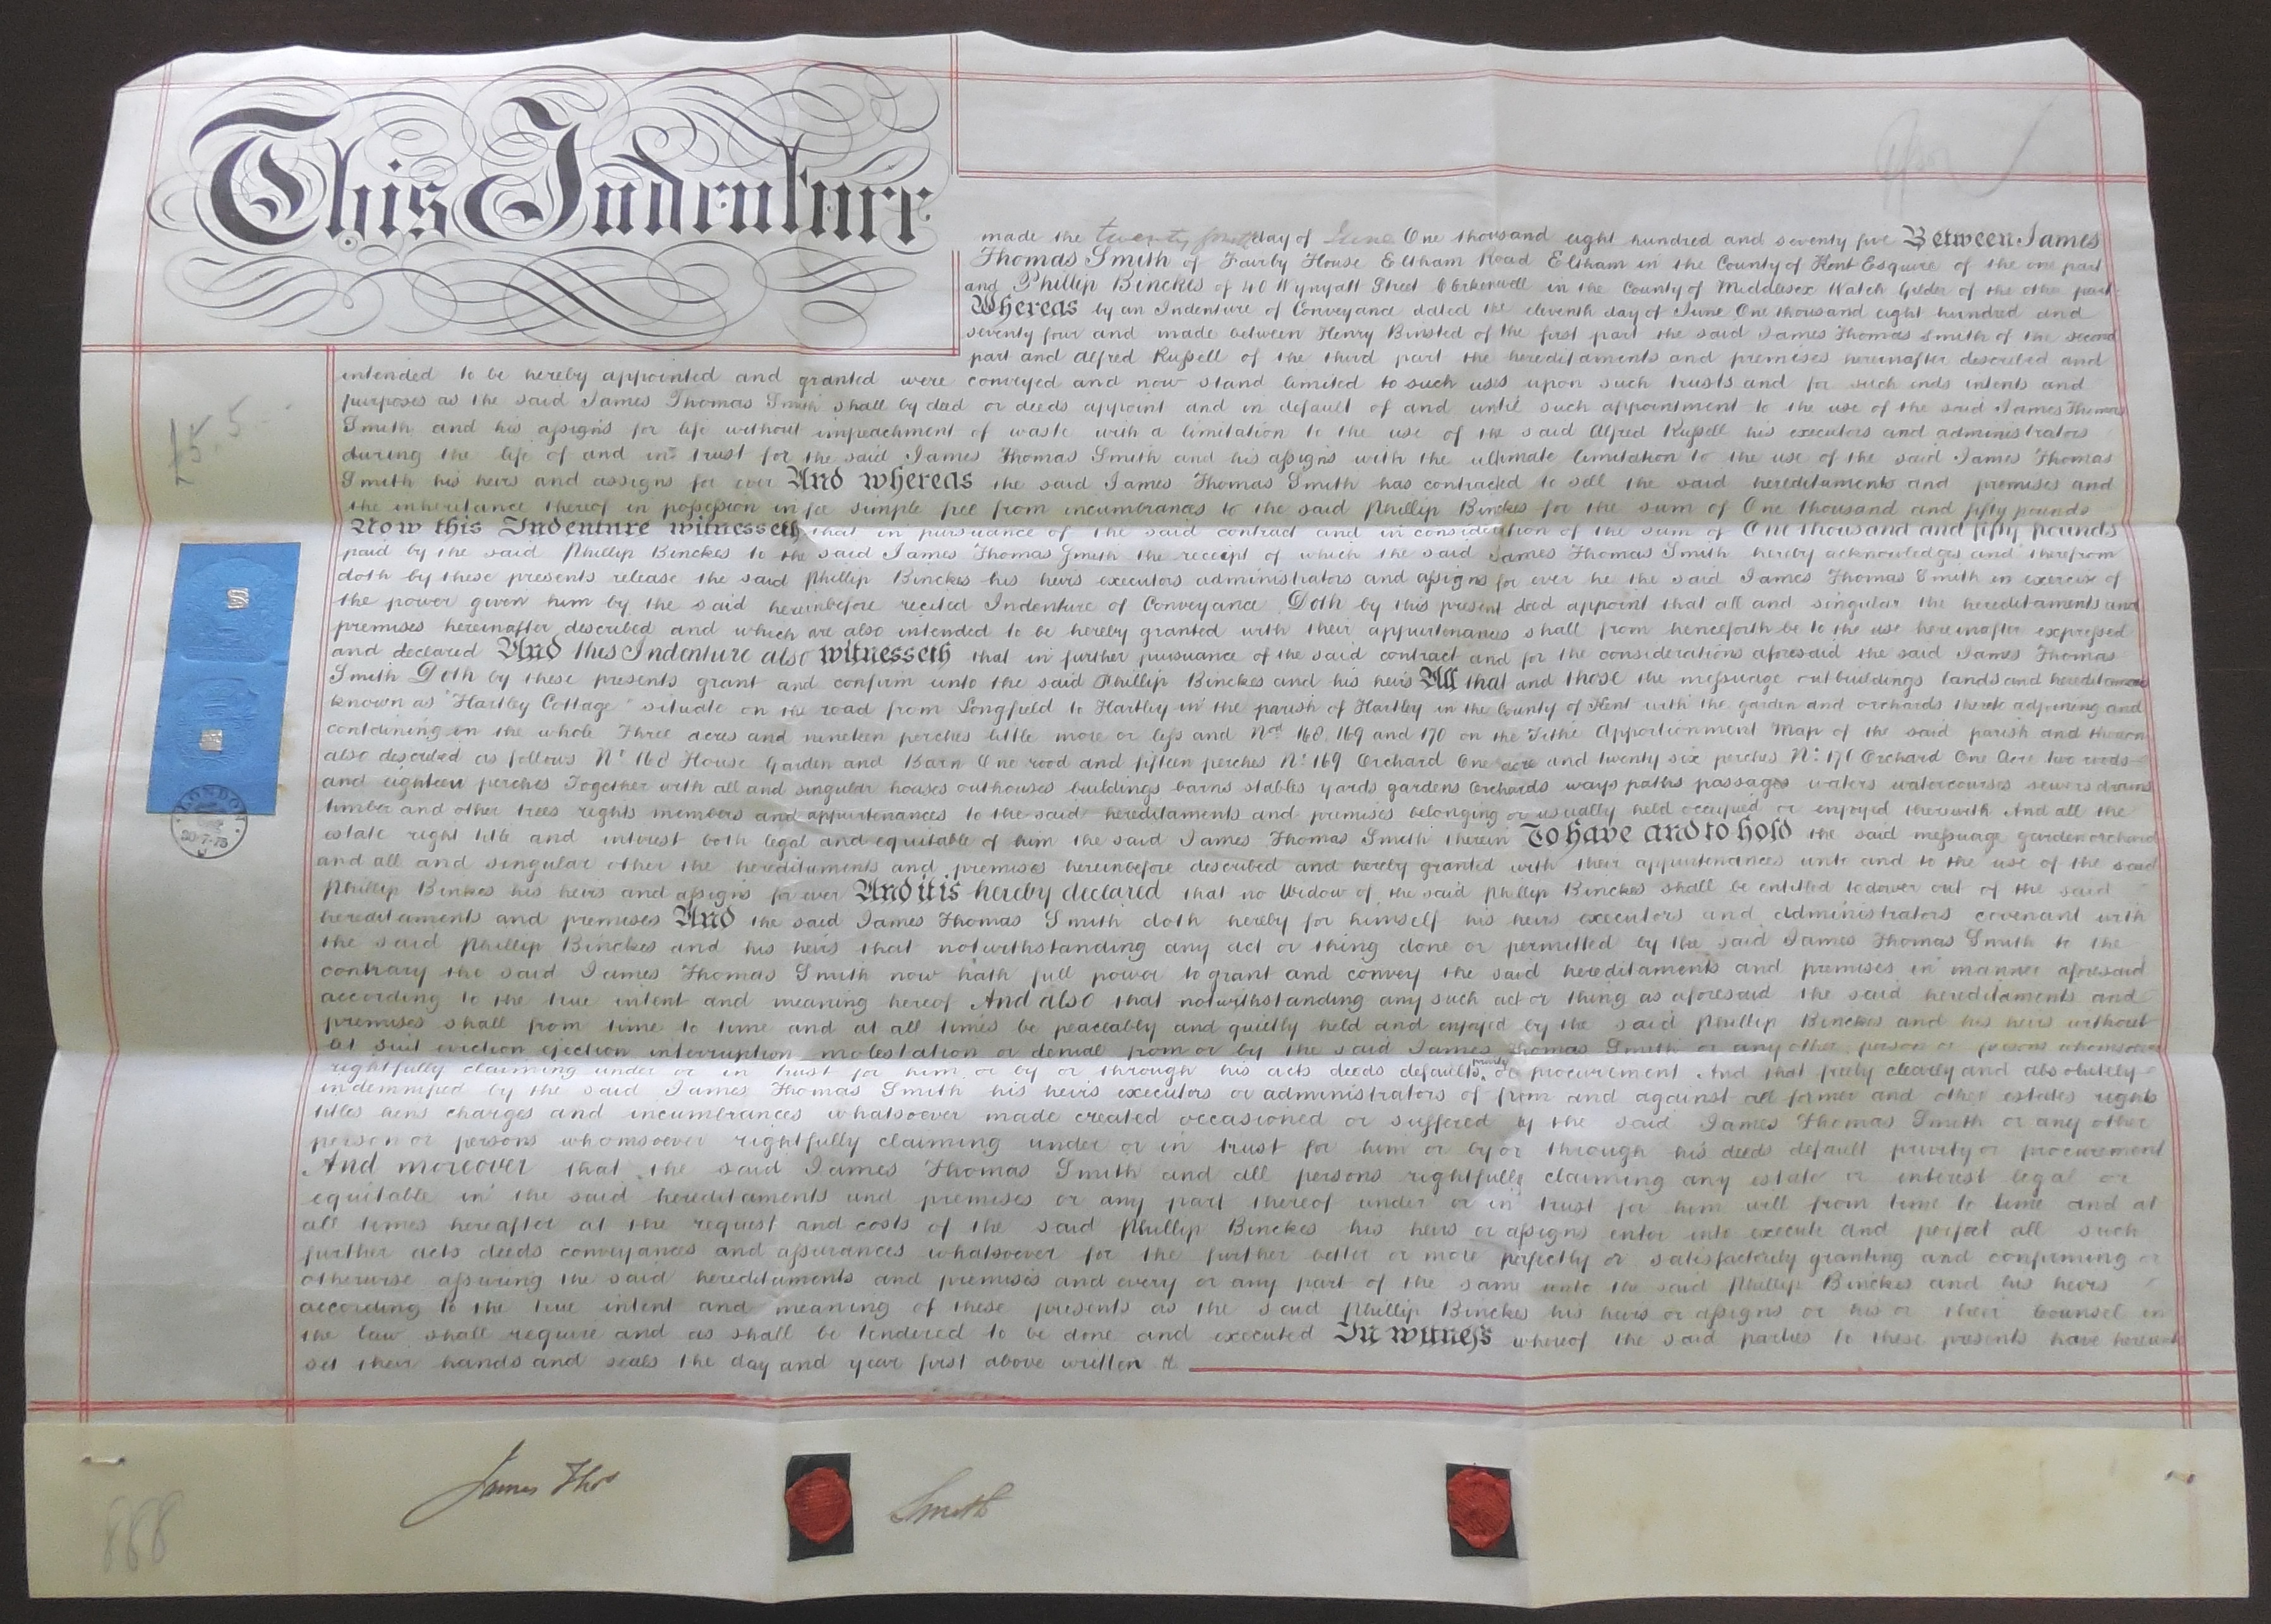 This Indenture
made the twenty day of June One thousand eight hundred and seventy five Between James
Thomas Smith of Fairby House Eltham Road Eltham in the County of Kent Esquire of the one part
and Phillip Binckes of 40 Wynyatt Street Clerkenwell in the County of Middlesex Watch Gilder of the other part
Whereas by an Indenture of Conveyance dated the eleventh day of June One thousand eight hundred and
seventy four and made between Henry Binsted of the first part the said James Thomas Smith of the second
part and Alfred Russell of the third part the hereditaments and premises hereinafter described and
intended to be hereby appointed and granted were conveyed and now stand limited to such uses upon such trusts and for such ends intents and
purposes as the said James Thomas Smith shall by deed or deeds appoint and in default of and until such appointment to the use of the said James Thomas
Smith and his assigns for life without impeachment of waste with a limitation to the use of the said Alfred Russell his executors and administrators
during the life of and in trust for the said James Thomas Smith and his assigns with the ultimate limitation to the use of the said James Thomas
Smith his heirs and assigns for ever And whereas the said James Thomas Smith has contracted to sell the said hereditaments and premises and
the inheritance thereof in possession in fee simple free from incumbrances to the said Phillip Binckes for the sum of One thousand and fifty pounds
Now this Indenture witnesseth that in pursuance of the said contract and in consideration of the sum of One thousand and fifty pounds
paid by the said Phillip Binckes to the said James Thomas Smith the receipt of which the said James Thomas Smith hereby acknowledges and therefrom
doth by these presents release the said Phillip Binckes his heirs executors administrators and assigns for ever he the said James Thomas Smith in exercise of
the power given him by the said hereinbefore recited Indenture of Conveyance Doth by this present deed appoint that all and singular the hereditaments and
premises hereinafter described and which are also intended to be hereby granted with their appurtenances shall from henceforth be to the use hereinafter expressed
and declared And this Indenture also witnesseth that in further pursuance of the said contract and for the considerations aforesaid the said James Thomas
Smith Doth by these presents grant and confirm unto the said Phillip Binckes and his heirs All that and those the messuage outbuildings lands and hereditaments
known as "Hartley Cottage" situate on the road from Longfield to Hartley in the parish of Hartley in the County of Kent with the garden and orchards thereto adjoining and
containing in the whole Three acres and nineteen perches little more or less and Nos 168, 169 and 170 on the Tithe Apportionment Map of the said parish and thereon
also described as follows No 168 House Garden and Barn One rood and fifteen perches No 169 Orchard One acre and twenty six perches No 171 Orchard One Acre two roods
and eighteen perches Together with all and singular houses outhouses buildings barns stables yards gardens Orchards ways paths passages waters watercourses sewers drains
timber and other trees rights members and appurtenances to the said hereditaments and premises belonging or usually held occupied or enjoyed therewith And all the
estate right title and interest both legal and equitable of him the said James Thomas Smith therein To have and to hold the said messuage garden orchard
and all and singular other the hereditaments and premises hereinbefore described and hereby granted with their appurtenances unto and to the use of the said
Phillip Binckes his heirs and assigns for ever And it is hereby declared that no Widow of the said Phillip Binckes shall be entitled to dower out of the said
hereditaments and premises And the said James Thomas Smith doth hereby for himself his heirs executors and administrators covenant with
the said Phillip Binckes and his heirs that notwithstanding any act or thing done or permitted by the said James Thomas Smith to the
contrary the said James Thomas Smith now hath full power to grant and convey the said hereditaments and premises in manner aforesaid
according to the true intent and meaning hereof And also that notwithstanding any such act or thing as aforesaid the said hereditaments and
premises shall from time to time and at all times be peaceably and quietly held and enjoyed by the said Phillip Binckes and his heirs without
let suit eviction ejection interruption molestation or denial from or by the said James Thomas Smith or any other person or persons whomsoever
rightfully claiming under or in trust for him or by or through his acts deeds defaults privity or procurement And that freely clearly and absolutely
indemnified by the said James Thomas Smith his heirs executors or administrators of from and against all former and other estates rights
titles liens charges and incumbrances whatsoever made created occasioned or suffered by the said James Thomas Smith or any other
person or persons whomsoever rightfully claiming under or in trust for him or by or through his deeds default privity or procurement
And moreover that the said James Thomas Smith and all persons rightfully claiming any estate or interest legal or
equitable in the said hereditaments and premises or any part thereof under or in trust for him will from time to time and at
all times hereafter at the request and costs of the said Phillip Binckes his heirs or assigns enter into execute and perfect all such
further acts deeds conveyances and assurances whatsoever for the further better or more perfectly or satisfactorily granting and confirming or
otherwise assuring the said hereditaments and premises and every or any part of the same unto the said Phillip Binckes and his heirs
according to the true intent and meaning of these presents as the said Phillip Binckes his heirs or assigns or his or their Counsel in
the law shall require and as shall be tendered to be done and executed In witness whereof the said parties to these presents have hereunto
set their hands and seals the day and year first above written
£5.5.-
LONDON
20-7-75
James Thos Smith
888